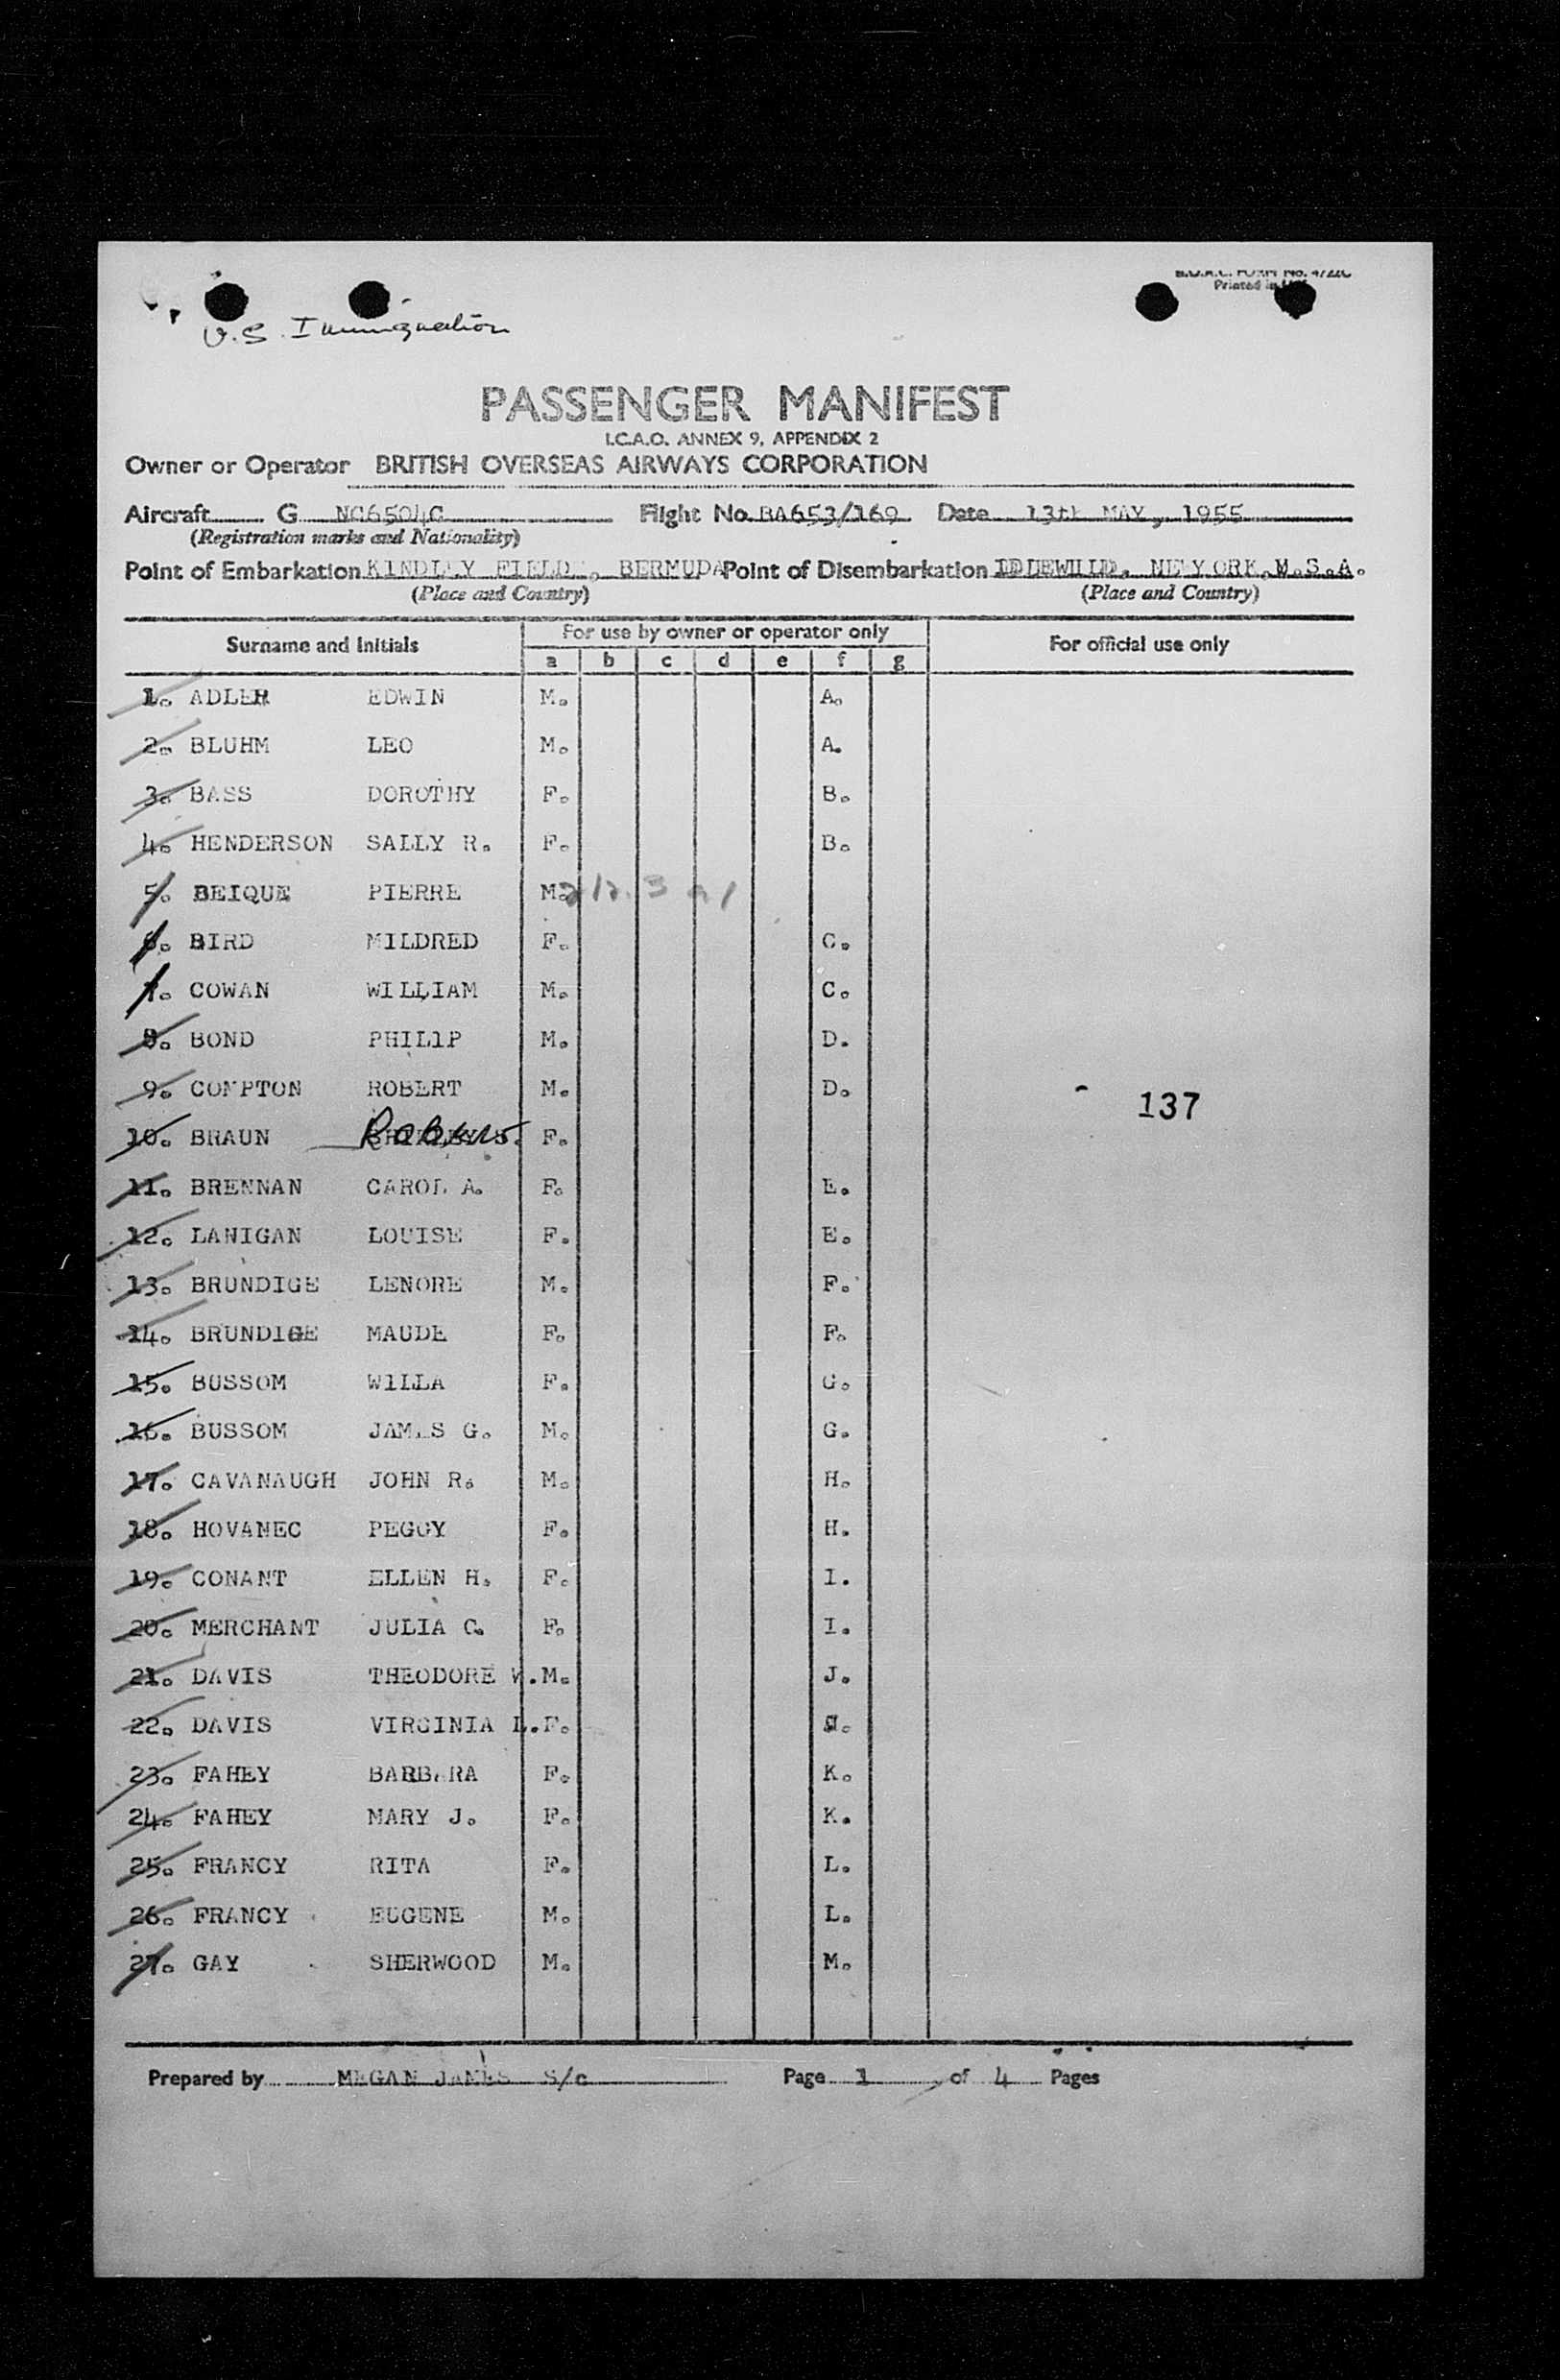 B.O.A.C. FORM No. 4722C
Printed in
U.S. Immigration
PASSENGER MANIFEST
I.C.A.O. ANNEX 9, APPENDIX 2
Owner or Operator BRITISH OVERSEAS AIRWAYS CORPORATION
Aircraft G NC6504C Flight No. BA653/169 Date 13th MAY, 1955
(Registration marks and Nationality)
Point of Embarkation KINDLEY FIELD, BERMUDA Point of Disembarkation IDLEWILD, NEW YORK, U.S.A.
(Place and Country) (Place and Country)
Surname and Initials For use by owner or operator only For official use only
a b c d e f g
1. ADLER EDWIN M. A.
2. BLUHM LEO M. A.
3. BASS DOROTHY F. B.
4. HENDERSON SALLY R. F. B.
5. BEIQUE PIERRE M.
6. BIRD MILDRED F. C.
7. COWAN WILLIAM M. C.
8. BOND PHILIP M. D.
9. COMPTON ROBERT M. D.
137
10. BRAUN F.
11. BRENNAN CAROL A. F. E.
12. LANIGAN LOUISE F. E.
13. BRUNDIGE LENORE M. F.
14. BRUNDIGE MAUDE F. F.
15. BUSSOM WILLA F. G.
16. BUSSOM JAMES G. M. G.
17. CAVANAUGH JOHN R. M. H.
18. HOVANEC PEGGY F. H.
19. CONANT ELLEN H. F. I.
20. MERCHANT JULIA C. F. I.
21. DAVIS THEODORE W. M. J.
22. DAVIS VIRGINIA L. F. J.
23. FAHEY BARBARA F. K.
24. FAHEY MARY J. F. K.
25. FRANCY RITA F. L.
26. FRANCY EUGENE M. L.
27. GAY SHERWOOD M. M.
Prepared by MEGAN JAMES S/c Page 1 of 4 Pages